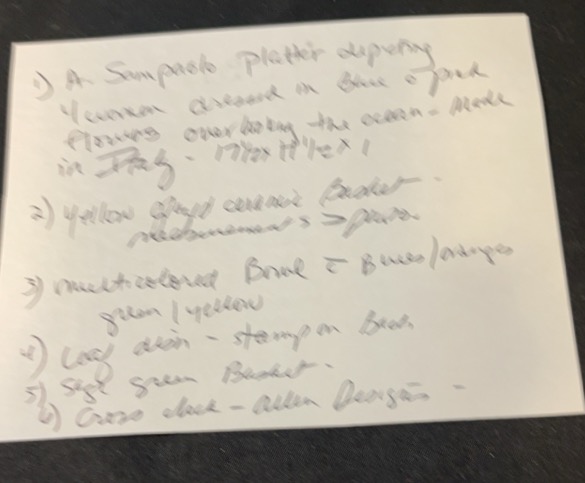 1) A Sampaolo Platter depicting
4 women dressed in blue & pink
flowers overlooking the ocean - Made
in Italy - 17 1/2 x 17 1/2 x 1
2) Yellow ceramic Basket -
measurements > photo
3) multicolored Bowl c̄ Blues/oranges
green/yellow
4) Leaf dish - stamp on Back
5) Sage green Basket -
6) Cross clock - Allen Designs -